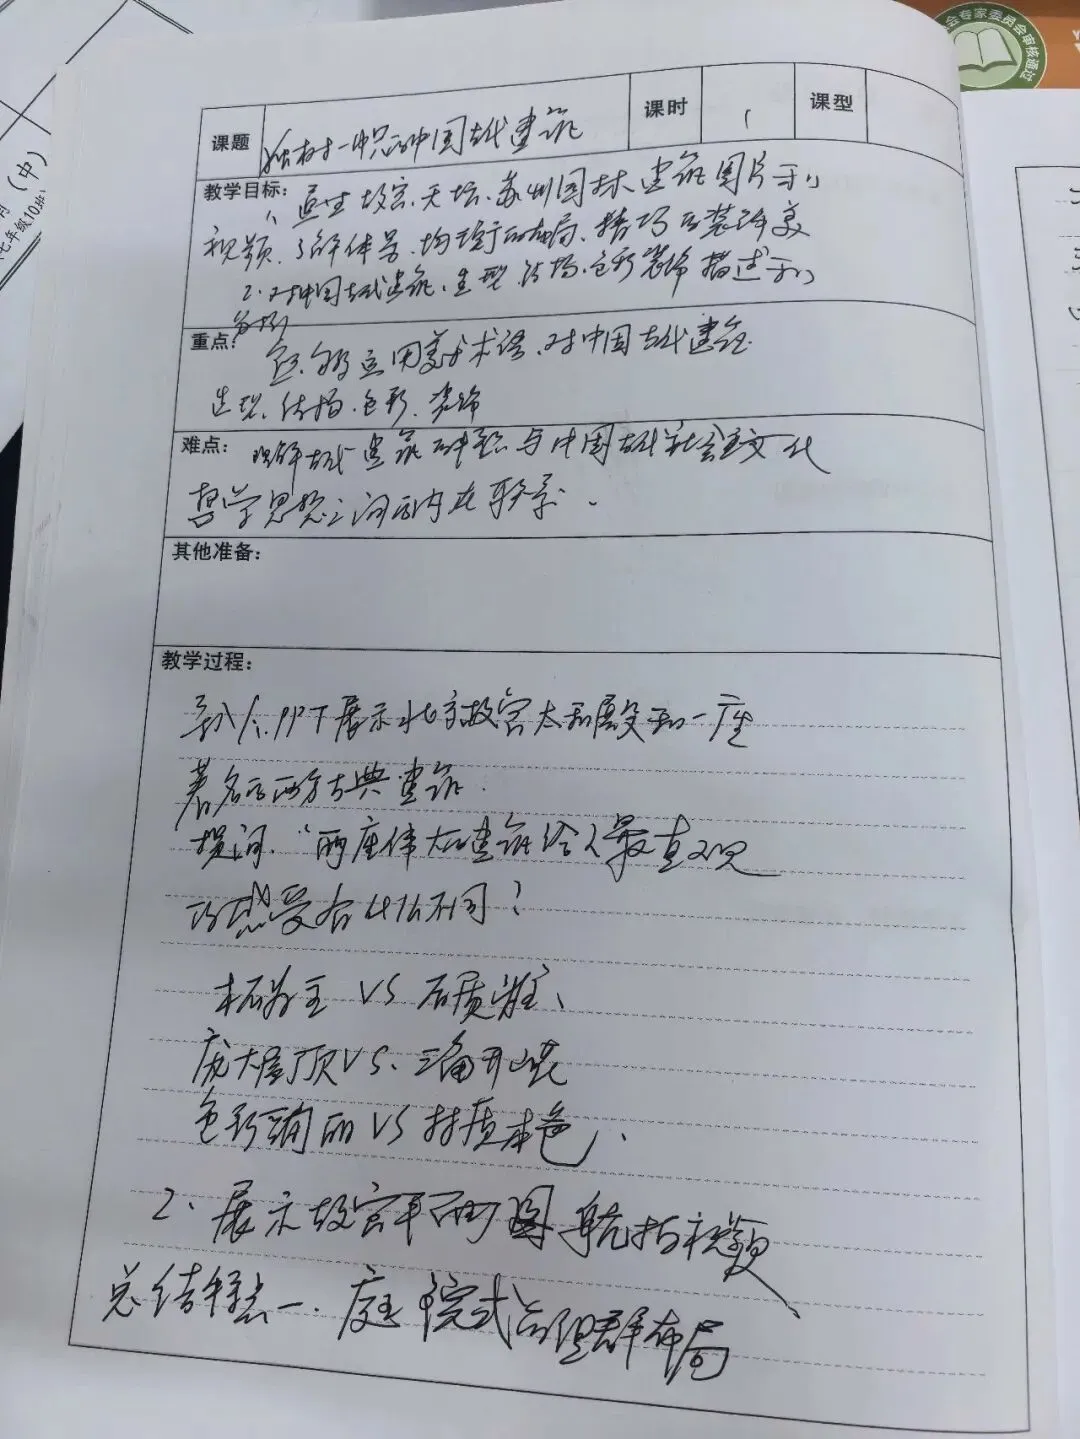 会专家委员会审核通过
(中)
七年级10班
课题 独树一帜的中国古代建筑 课时 1 课型
教学目标：1、通过故宫、天坛、苏州园林建筑图片
视频、了解体量、均衡的布局、精巧的装饰美
2、对中国古代建筑、造型、结构、色彩装饰描述
分析
重点： 能够运用美术术语、对中国古代建筑
造型、结构、色彩、装饰
难点： 理解古代建筑 与中国古代社会文化
哲学思想之间的内在联系.
其他准备：
教学过程：
导入1、PPT展示北京故宫太和殿和一座
著名的西方古典建筑.
提问、“两座伟大的建筑给人最直观
的感受有什么不同？
木石为主 VS 石质为主、
庞大屋顶VS、三角开
色彩绚丽VS材质本色、
2、展示故宫平面图 航拍视频
总结特点一、庭院式的组群布局